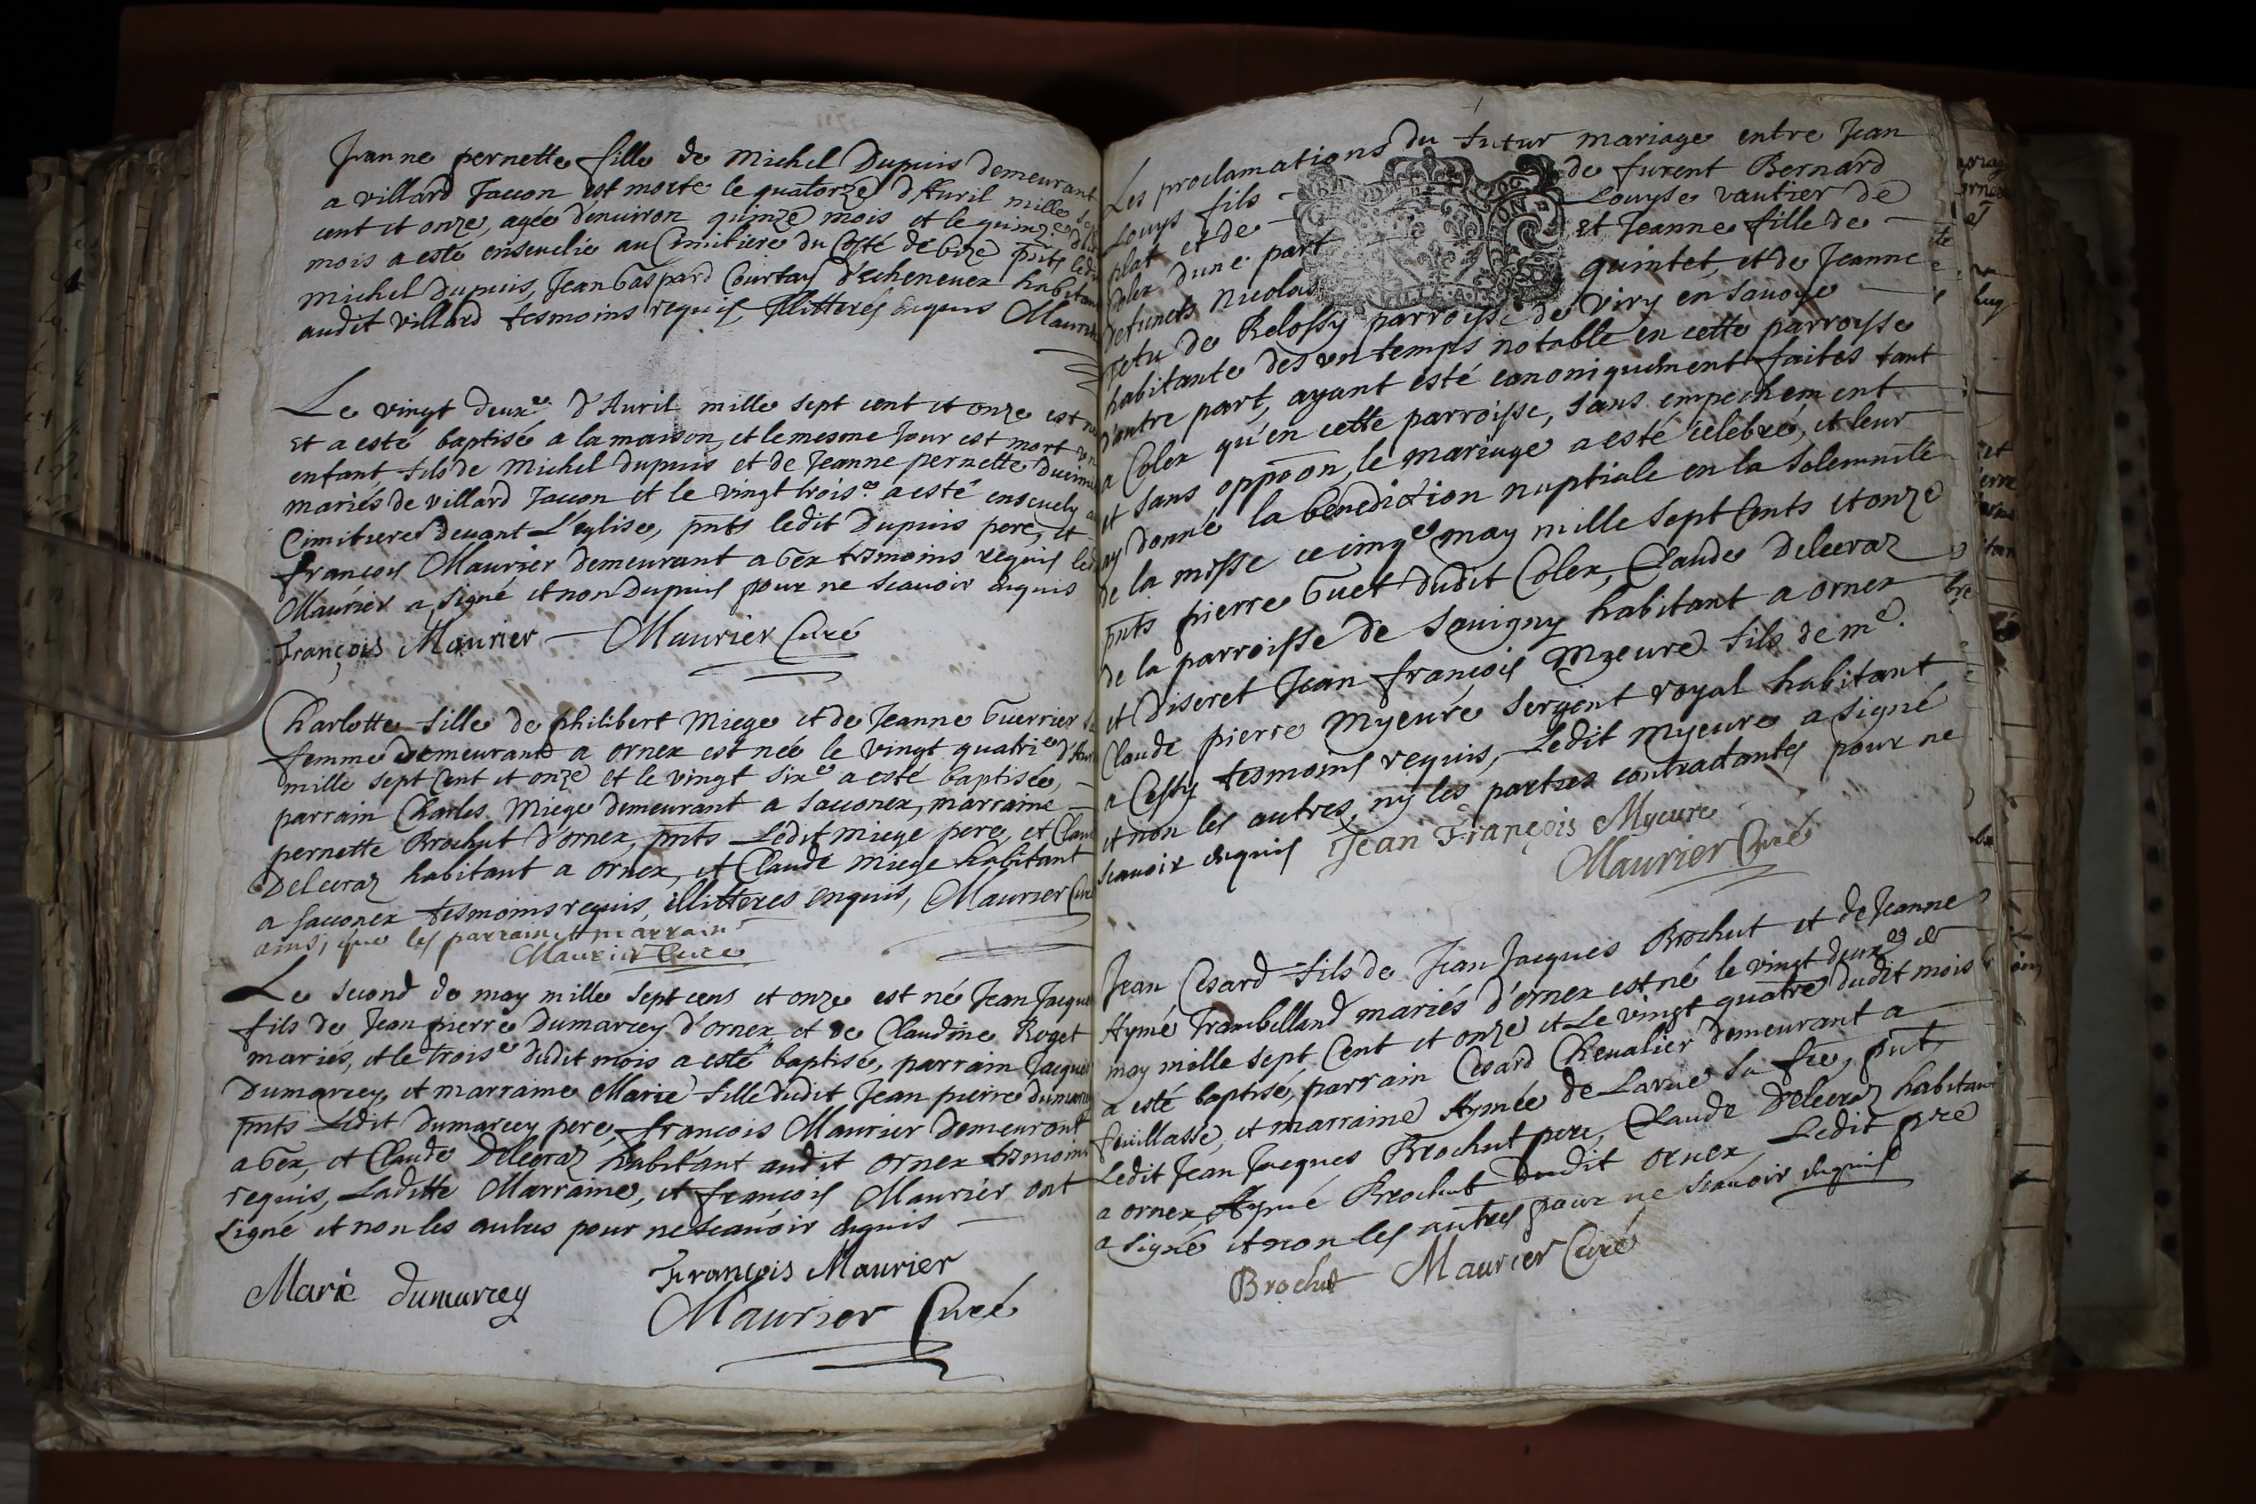 Jeanne pernette fille de Michel Dupuis demeurant
a villard Taccon est morte le quatorze d'Auril mille
cent et onze, agée d'enuiron quinze mois et le quinze
mois a esté enseuelie au Cimitiere du Costé de bize pnts
Michel Dupuis, Jean Gaspard Courtay d'echeneuex habitan
audit villard tesmoins requis, Illitterés enquis Maurier
Le vingt deuxe d'Auril mille sept cent et onze est
Et a esté baptisé a la maison, et le mesme Jour est mort un
enfant, fils de Michel dupuis et de Jeanne pernette
mariés de villard Taccon et le vingt troise a esté enseuely
Cimitiere deuant L'eglise, pnts ledit Dupuis pere, et
françois Maurier demeurant a Gex tesmoins requis
Maurier a signé et non Dupuis pour ne scauoir enquis
François Maurier Maurier Curé
Charlotte fille de philibert Miege et de Jeanne Guerrier
femme demeurant a ornex est née le vingt quatrie d'
mille sept Cent et onze et le vingt sixe a esté baptisée,
parrain Charles Miege demeurant a sacconex, marraine
pernette Brochut d'ornex, pnts Ledit Miege pere, et
Delecraz habitant a ornex, et Claude Miege habitant
a sacconex tesmoins requis, illitteres enquis, Maurier Curé
ainsi que les parrain et marraine
Maurier Curé
Le second de may mille sept cens et onze est né Jean Jacque
fils de Jean pierre Dumarcey d'ornex et de Claudine Roget
mariés, et le troise dudit mois a esté baptisé, parrain Jacques
Dumarcey, et marraine Marie fille dudit Jean pierre dumarcey
pnts Ledit Dumarcey pere, francois Maurier demeurant
a Gex, et Claude Delecraz habitant audit ornex tesmoins
requis, Laditte Marraine, et françois Maurier ont
signé et non les autres pour ne scauoir enquis
Marie dumarcey François Maurier
Maurier Curé
Les proclamations du futur mariage entre Jean
Louys fils de furent Bernard
plat et de Louyse vautier de
Colex dune part Et Jeanne fille de
defuncts Nicolas quintet, et de Jeanne
de parroisse de Viry en sauoye
habitante des un temps notable en cette parroisse
d'autre part, ayant esté canoniquement faites tant
a Colex qu'en cette parroisse, sans empechement
et sans oppoon, le mariage a esté celebré, et leur
ay donné la benediction nuptiale en la solemnité
de la messe ce cinqe may mille sept Cents et onze
pnts pierre Guet dudit Colex, Claude Delecraz
de la parroisse de Sauigny habitant a ornex
et discret Jean françois Myeure fils de me.
Claude pierre Myeure sergent royal habitant
a Cessy tesmoins requis, Ledit Myeure a signé
et non les autres, ny les parties contractantes pour ne
scauoir enquis Jean François Myeure
Maurier Curé
Jean Cesard fils de Jean Jacques Brochut et de Jeanne
Aymé Trambilland mariés d'ornex est né le vingt deuxe de
may mille sept Cent et onze et Le vingt quatre dudit mois
a esté baptisé, parrain Cesard Cheualier demeurant a
feuillasse, et marraine Aymée de Larue sa fee, pnt,
Ledit Jean Jacques Brochut pere, Claude Delecraz habitant
a ornex, Aymé Brochut dudit ornex Ledit pere
a signé et non les autres pour ne scauoir enquis
Brochut Maurier Curé